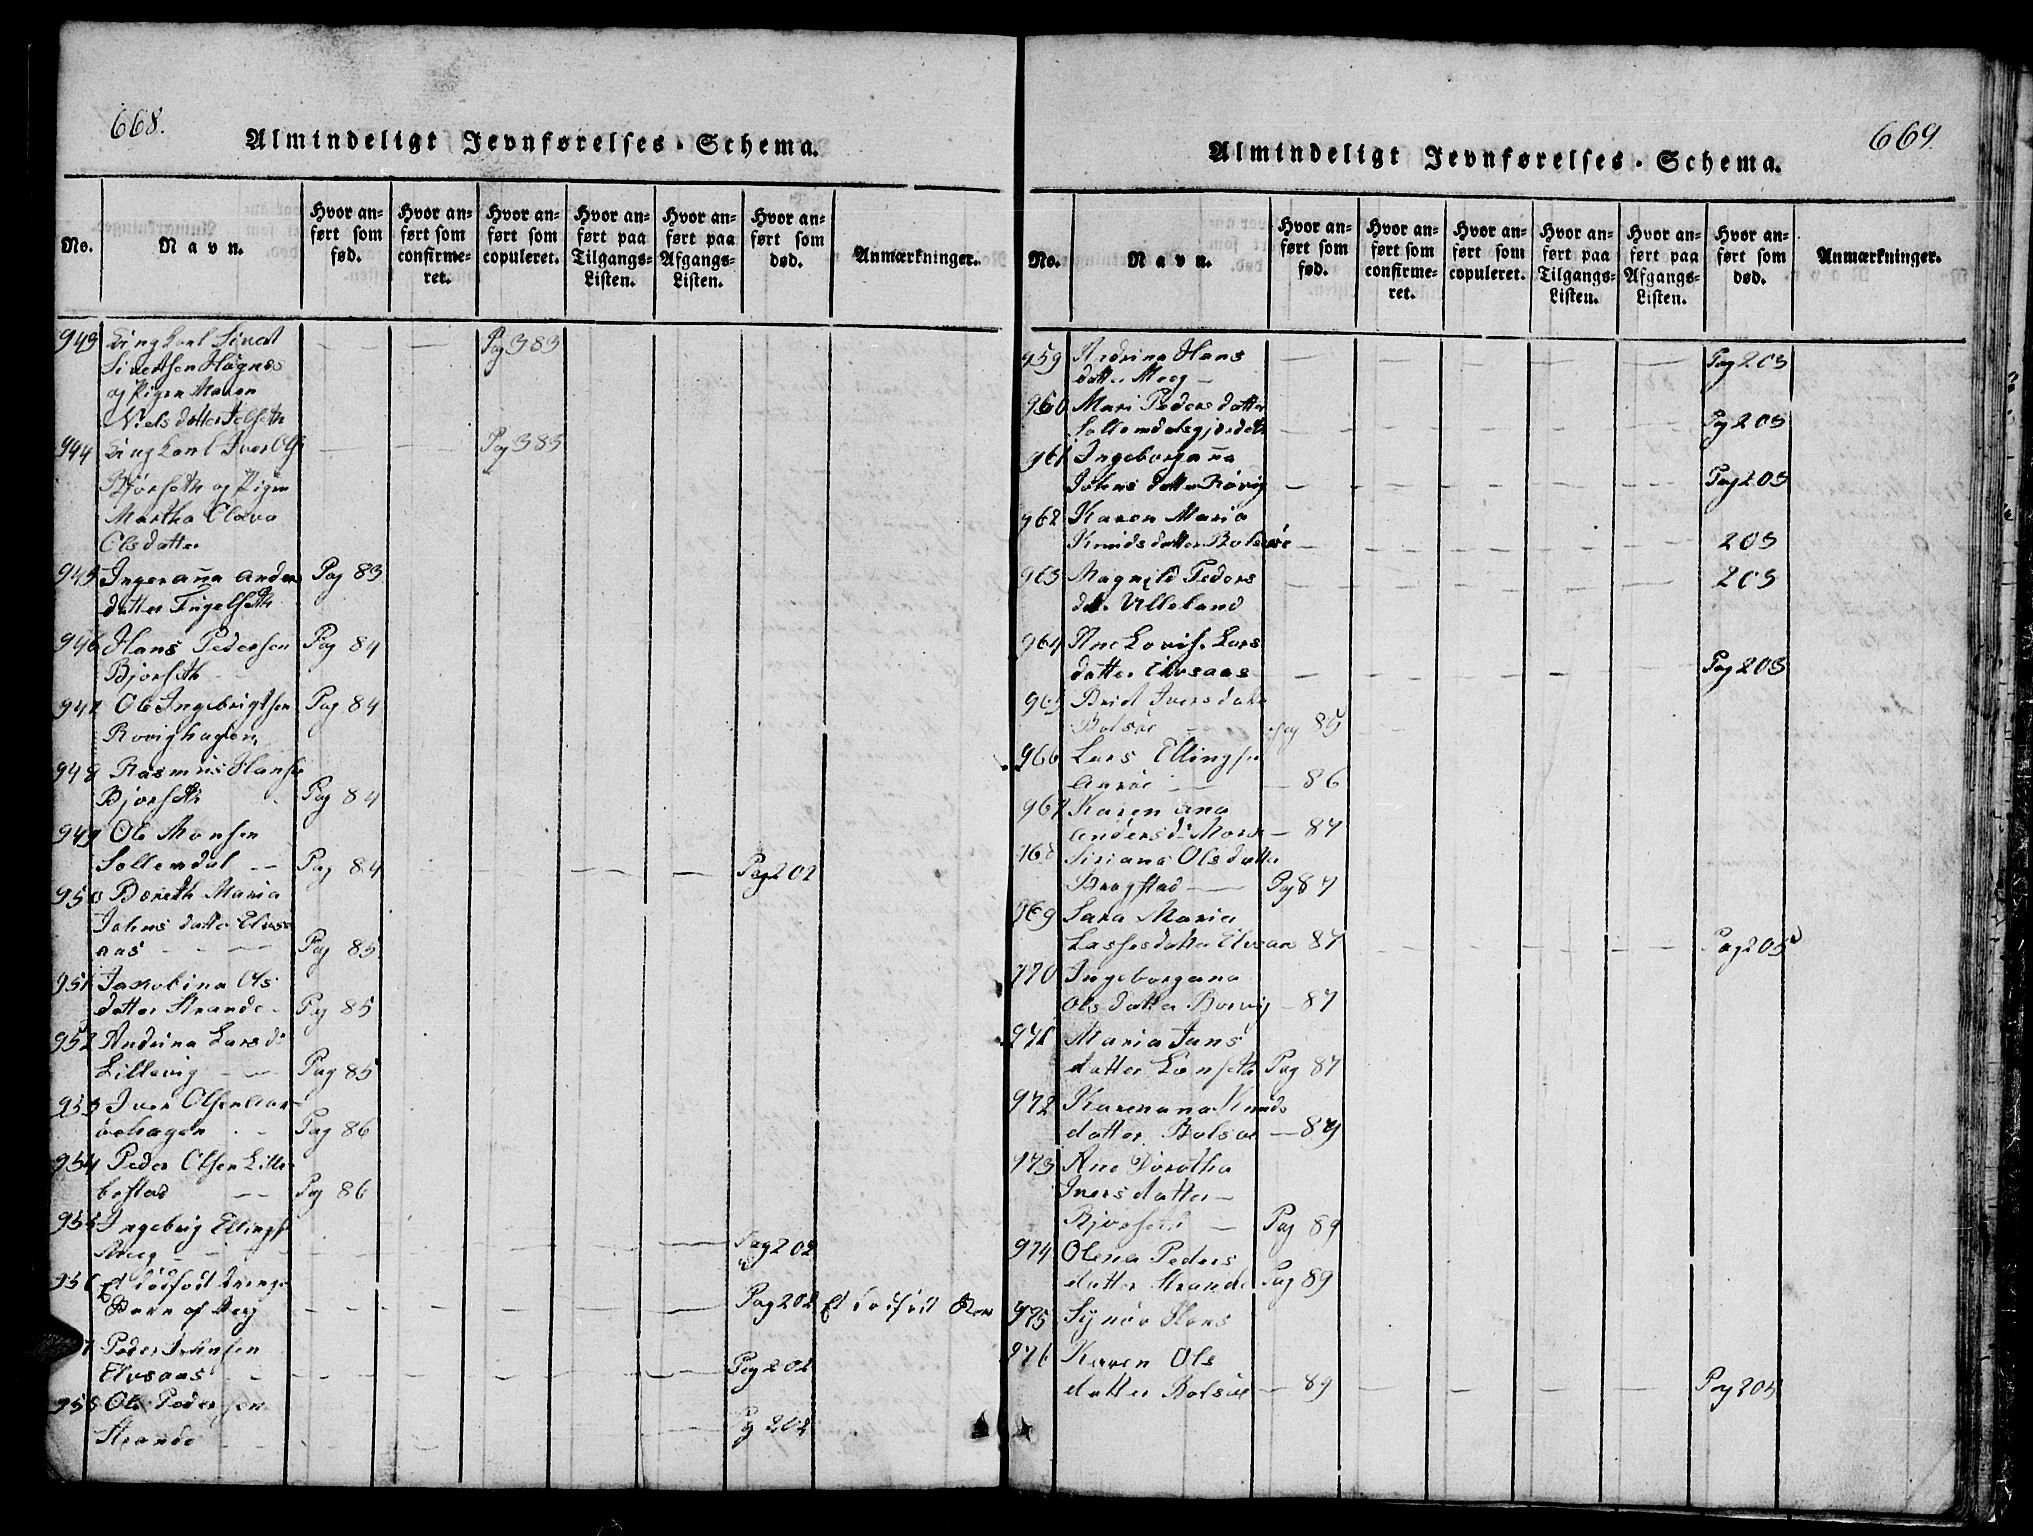 668.
Almindeligt Jevnførelses-Schema.
No. Navn. Hvor anført som fød. Hvor anført som confirmeret. Hvor anført som copuleret. Hvor anført paa Tilgangs-Listen. Hvor anført paa Afgangs-Listen. Hvor anført som død. Anmærkninger.
943 Ungkarl Sivert Pag 383
Sivertsen Hagnæs
og Pigen Maren
Nielsdatter
944 Ungkarl Iver Ols Pag 383
Bjørseth og Pigen
Martha Olava
Olsdatter
945 Ingeranna Anders Pag 83
datter Tugelseth
946 Hans Pedersen Pag 84
Bjorseth
947 Ole Ingebrigtsen Pag 84
Rovighagen
948 Rasmus Hanse
Bjorseth Pag 84
949 Ole Monsen
Sollemdal Pag 84 Pag 202
950 Bereth Maria
Johns datter Elvse
aas Pag 85
951 Jakobina Ols
datter Strande Pag 85
952 Andrina Larsd:
Lillevig Pag 85
953 Iver Olsen
øehagen Pag 86
954 Peder Olsen Lille
bostad Pag 86
955 Ingebrig Ellings
Pag 202
956 Et dødfød Drenge
Barn af Pag 202 Et dødfød
7 Peder Johnsen
Elvsaas Pag 202
958 Ole Pedersen
Strande Pg 202
669.
Almindeligt Jevnførelses-Schema.
No. Navn. Hvor anført som fød. Hvor anført som confirmeret. Hvor anført som copuleret. Hvor anført paa Tilgangs-Listen. Hvor anført paa Afgangs-Listen. Hvor anført som død. Anmærkninger.
959 Andrina Hans Pag 203
datter Moeg
960 Mari Peders datter Pag 203
Sollemdalsgjerdet
961 Ingeborgaña
Johns datter Røvig Pag 203
962 Karen Maria
Knuds datter Bolsøe 203
963 Magnild Peders 203
dat. Ulleland
964 Ane Lovise Lars
datter Elvsaas Pag 203
965 Brit Iversdatter
Bolsøe Pag 85
966 Lars Ellingsen
86
967 Karen Ana
Andersd: 87
968 Siriana Olsdatter
Pag 87
969 Sara Maria
Lassesdatter Elvsaas 87 Pag 205
970 Ingeborgana
Olsdatter 87
971 Maria Jens
datter Lønseth Pag 87
972 Karenana Knuds
datter Bolsøe 89
973 Ane Dorothea
Iversdatter
Bjorseth Pag 89
974 Olena Peders
datter Strande Pag 89
975 Synøv Hans
976 Karen Ols
datter Bolsøe 89 Pag 205